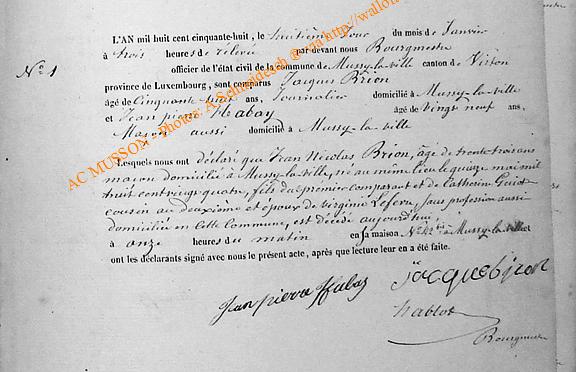 L'AN mil huit cent cinquante-huit, le huitième jour du mois de Janvier
N° 1
à trois heures de relevée par devant nous Bourgmestre
officier de l'état civil de la commune de Mussy-la-ville canton de Virton
province de Luxembourg, sont comparus Jacques Brion
âgé de Cinquante huit ans, Journalier domicilié à Mussy-la-ville
et Jean pierre Habay âgé de Vingt neuf ans,
Maçon aussi domicilié à Mussy-la-ville
Lesquels nous ont déclaré que Jean Nicolas Brion, âgé de trente trois ans
maçon domicilié à Mussy-la-ville, né au même lieu le quinze mai mil
huit cent vingt quatre, fils du premier comparant et de Catherine
cousin au deuxième et époux de Virginie Lefevre, sans profession aussi
domiciliée en cette Commune, est décédé aujourd'hui
à onze heures du matin en sa maison N° 42 bis à Mussy-la-ville
ont les déclarants signé avec nous le présent acte, après que lecture leur en a été faite.
Jean pierre Habay
Jacque brion
Bourgmestre
AC MUSSON - Photos: A.Schmideseh @ via http://wallon